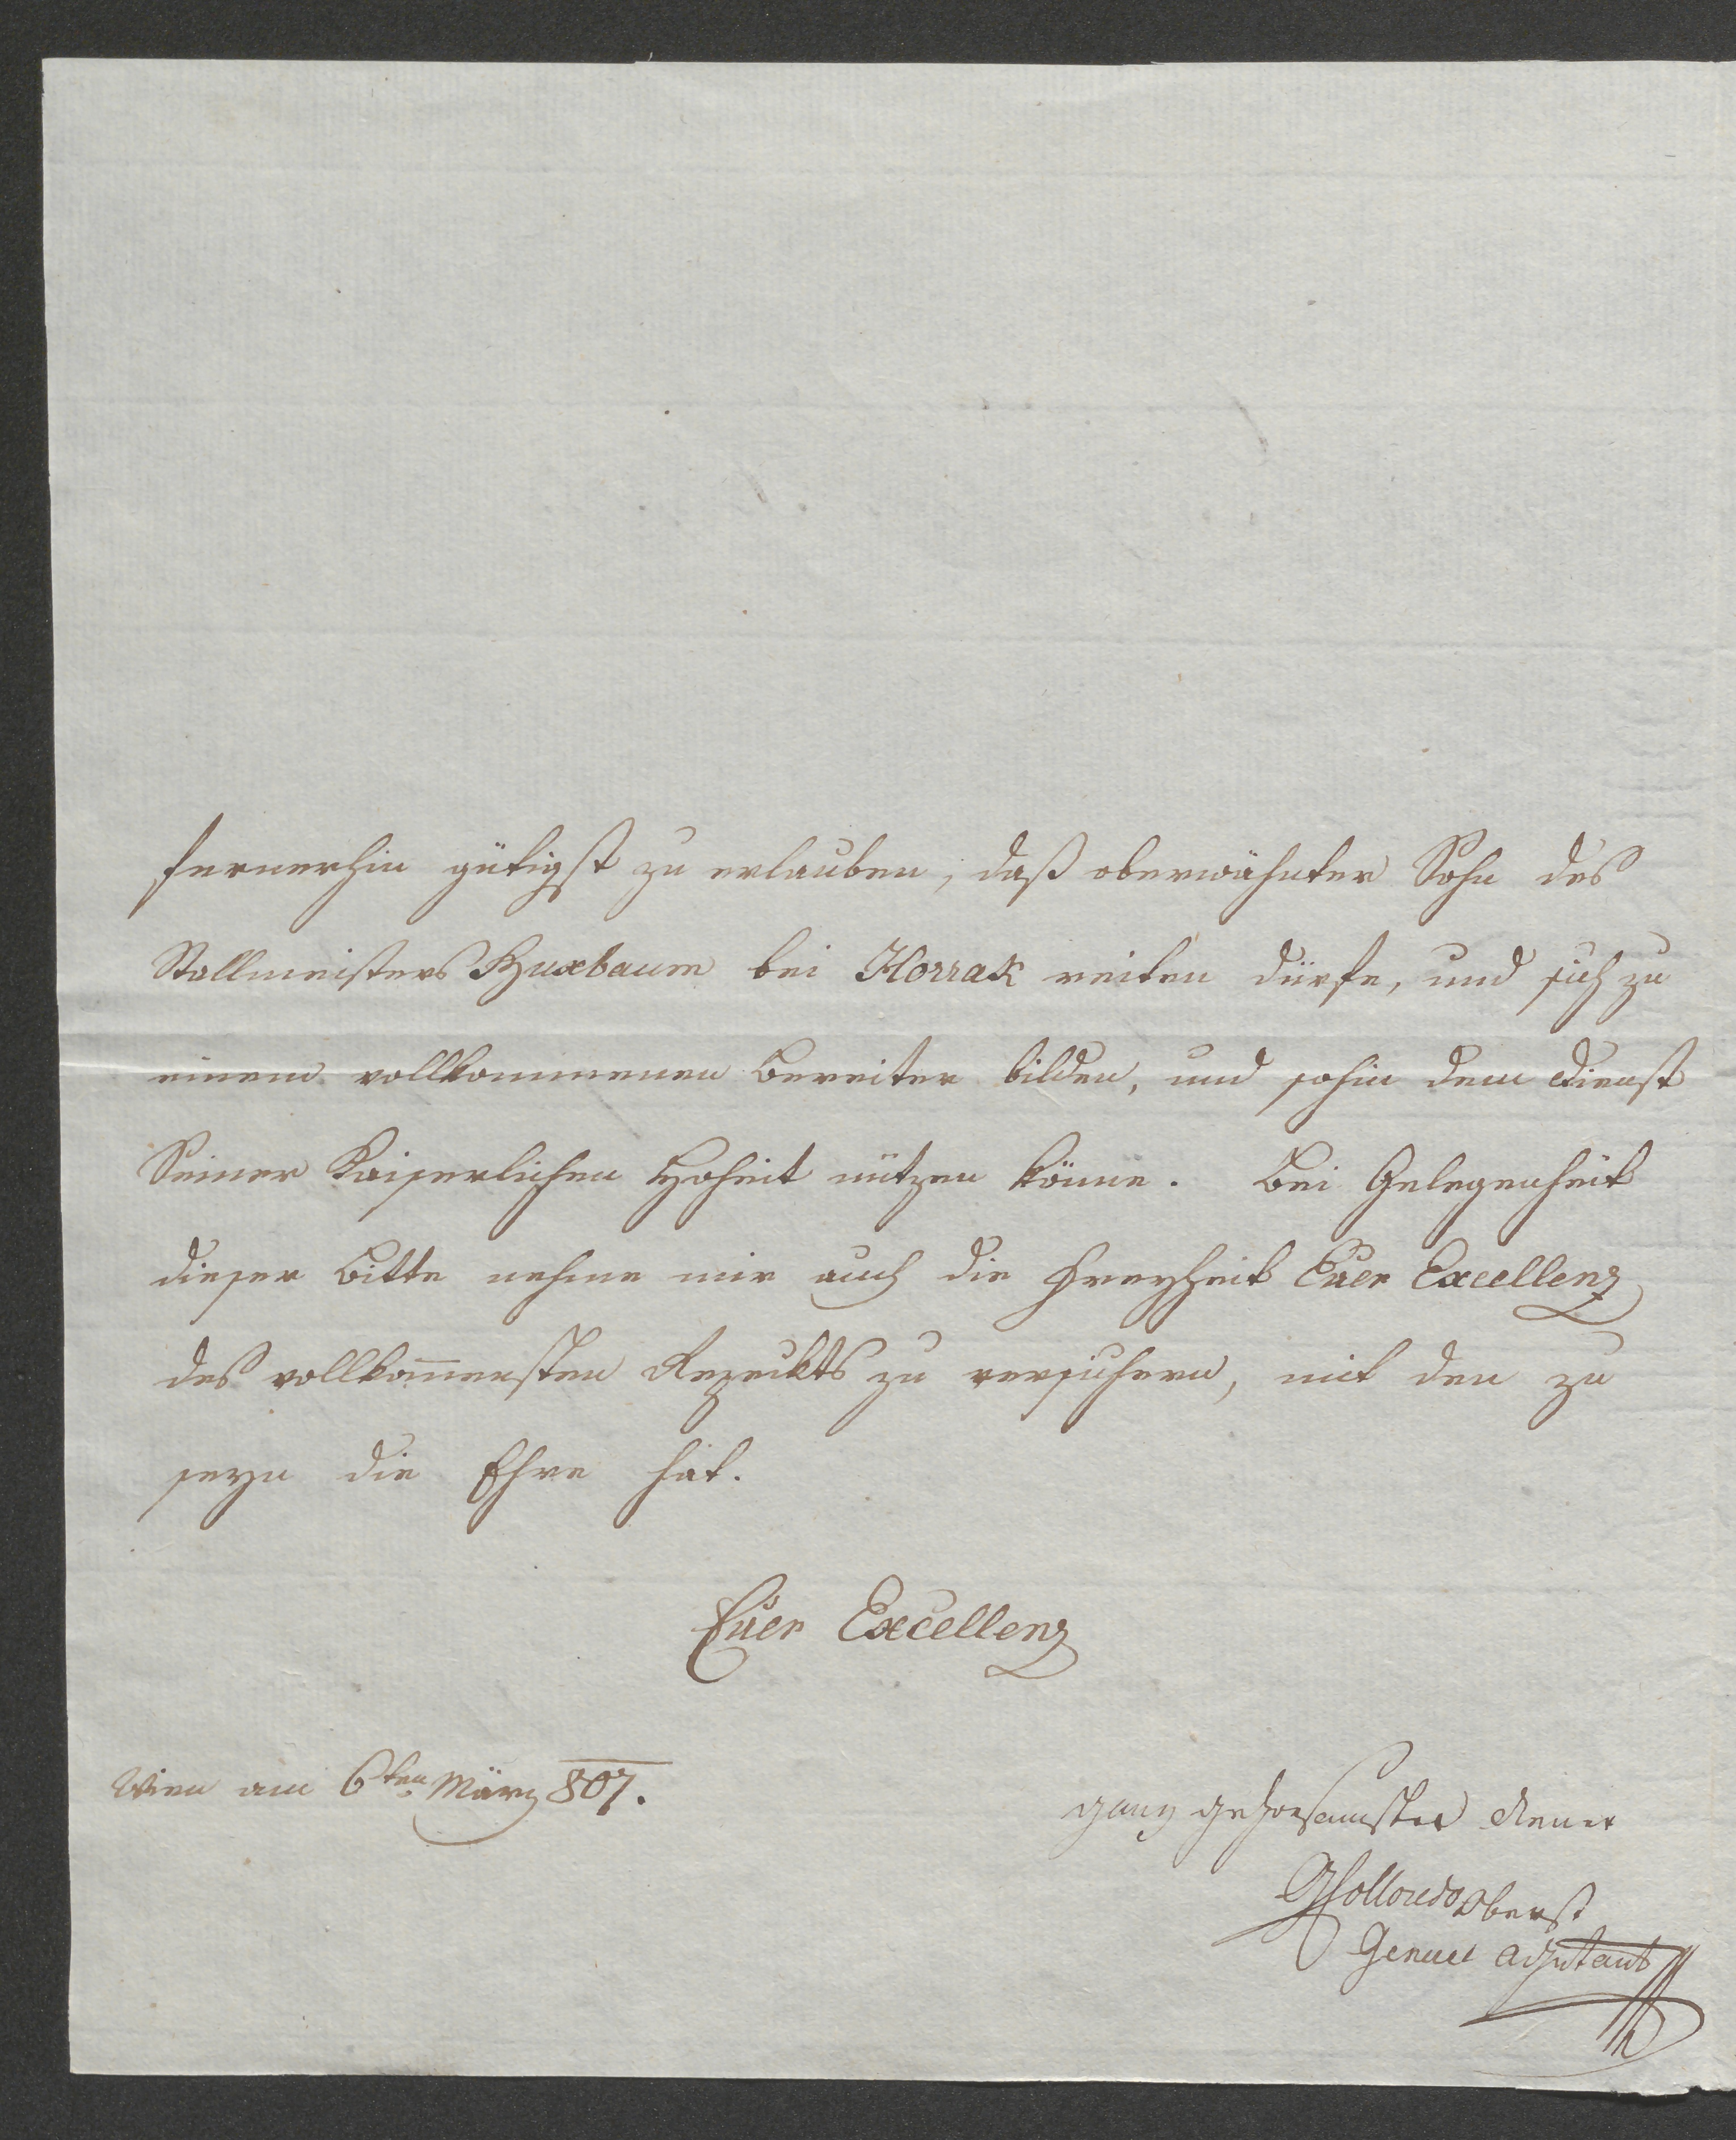 fernerhin gütigst zu erlauben, daß oberwähnter Sohn des
Stallmeisters Huxbaum bei Horrak reiten dürfe, und sich zu
einem vollkommenen Bereiter bilden, und sohin dem Dienst
Seiner Kaiserlichen Hoheit nützen könne. Bei Gelegenheit
dieser Bitte nehme mir auch die Freyheit Euer Excellenz
des vollkom̅ensten Respeckts zu versichern, mit den zu
seyn die Ehre hat.
Euer Excellenz
Wien am 6ten März 807.
ganz gehorsamster Diener
Colloredo Oberst
General Adjutant